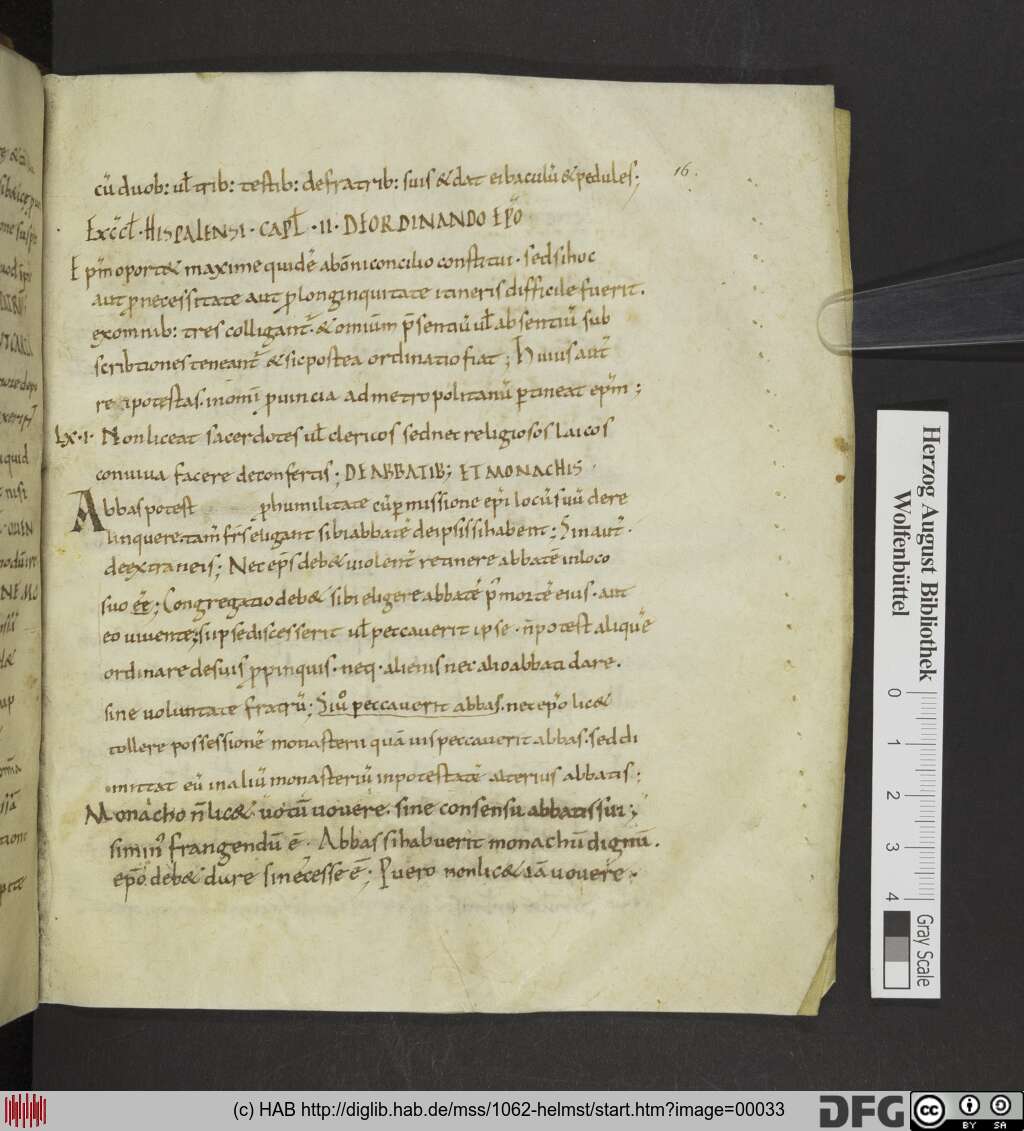 16.
cū duob: ul̄ trib: testib: defratrib: suis & dat ei baculū & pedules;
Exc̄cl̄ · HISPALENSI · CAPL̄ · II · DEORDINANDO EPŌ
Epm̄ oport& maxime quidē abom̄i concilio constitui · sed si hoc
aut ꝓ necessitate aut ꝓ longinquitate itineris difficile fuerit.
ex omnib: tres colligant̄ · & omium̄ p̄sentiū ul̄ absentiū sub
scribtiones teneant̄ & sic postea ordinatio fiat; Huius aut̄
rei potestas in om̄i ꝓuincia ad metropolitanū ꝑtineat ep̄m;
Lx·I· Non liceat sacerdotes ul̄ clericos sed nec religiosos laicos
conuiua facere deconfertis; DE ABBATIB; ET MONACHIS ·
Abbas potest ꝓ humilitate cū ꝑmissione ep̄i locū suū dere
linquere tam̄ fr̄s eligant sibi abbatē de ipsis si habent; Sin aut̄ ·
de extraneis; Nec ep̄s deb& uiolent̄ retinere abbatē in loco
suo ēē; Congregatio deb& sibi eligere abbatē p̄ mortē eius · aut
eo uiuente; si ipse discesserit ul̄ peccauerit ipse · n̄ potest aliquē
ordinare de suis ꝓpinquis · neq · alienis nec alio abbati dare.
sine uoluntate fratrū; Siů peccauerit abbas. nec ep̄o lic&
tollere possessionē monasterii quāuis peccauerit abbas. sed di
mittat eū in aliū monasteriū in potestatē alterius abbatis;
Monacho n̄ lic& uotū uouere. sine consensu abbatis sui;
sim̄in̄ frangendū ē · Abbas si habuerit monachū dignū.
ep̄o deb& dare si necesse ē; Puero non lic& iā uouere;
Herzog August Bibliothek
Wolfenbüttel
0 1 2 3 4
Gray Scale
(c) HAB http://diglib.hab.de/mss/1062-helmst/start.htm?image=00033
DFG
cc BY SA